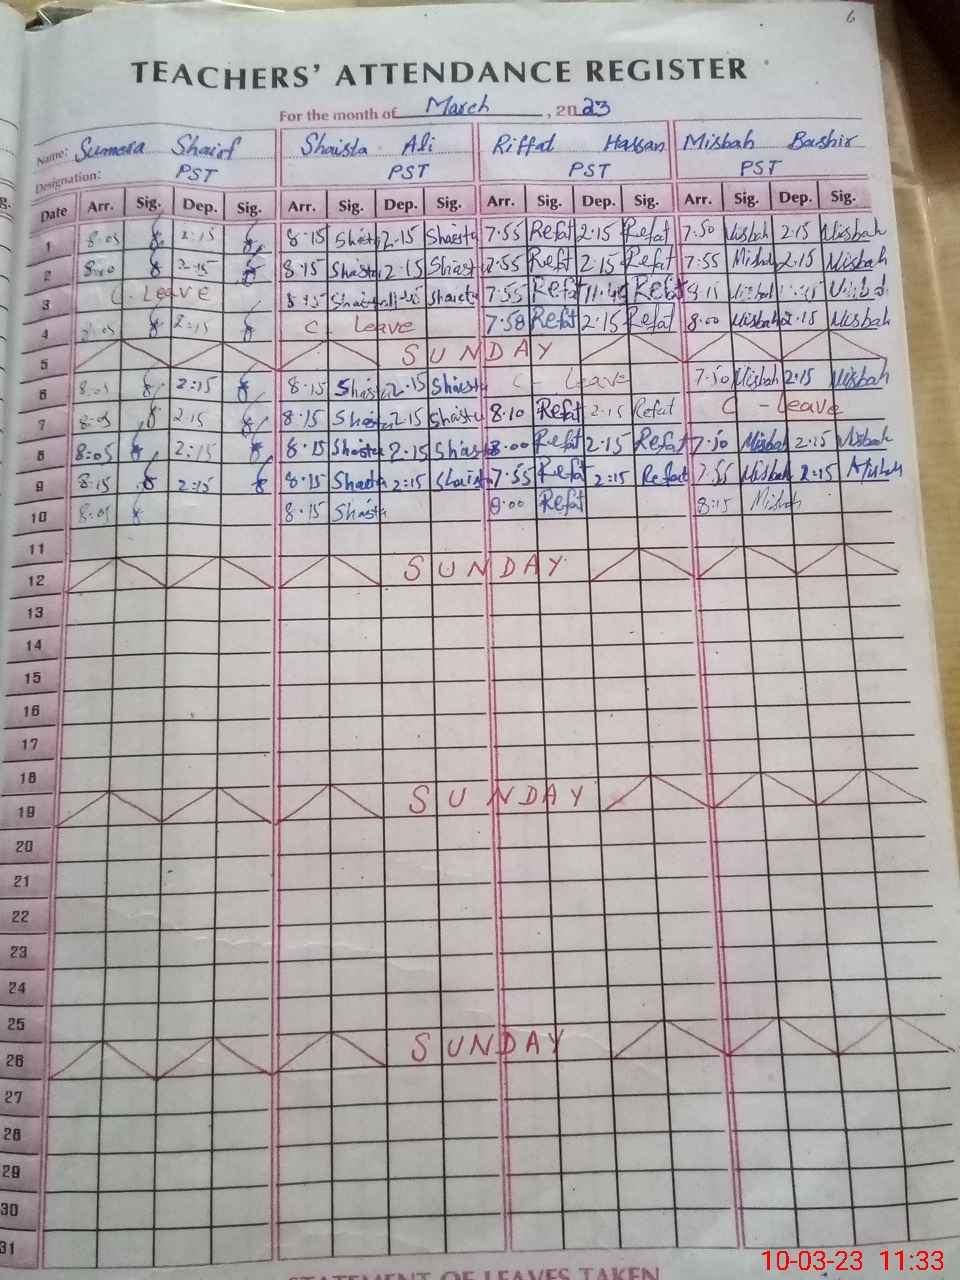 6
TEACHERS' ATTENDANCE REGISTER
For the month of March, 2023
Name: Sumera Sharif Shaista Ali Riffat Hassan Misbah Bashir
Designation: PST PST PST PST
g. Date Arr. Sig. Dep. Sig. Arr. Sig. Dep. Sig. Arr. Sig. Dep. Sig. Arr. Sig. Dep. Sig.
1 8:05 2:15 8:15 Shaista 2:15 Shaista 7:55 Refat 2:15 Refat 7:50 Misbah 2:15 Misbah
2 8:10 2:15 8:15 Shaista 2:15 Shaista 7:55 Refat 2:15 Refat 7:55 Misbah 2:15 Misbah
3 C-Leave 8:15 Shaista Shaista 7:55 Refat 11:45 Refat 8:15 Misbah Misbah
4 8:05 2:15 C- Leave 7:58 Refat 2:15 Refat 8:00 Misbah 2:15 Misbah
5 SUNDAY
6 8:05 2:15 8:15 Shaista 2:15 Shaista C- Leave 7:50 Misbah 2:15 Misbah
7 8:05 2:15 8:15 Shaista 2:15 Shaista 8:10 Refat 2:15 Refat C-Leave
8 8:05 2:15 8:15 Shaista 2:15 Shaista 8:00 Refat 2:15 Refat 7:50 Misbah 2:15 Misbah
9 8:15 2:15 8:15 Shaista 2:15 Shaista 7:55 Refat 2:15 Refat 7:55 Misbah 2:15 Misbah
10 8:05 8:15 Shaista 8:00 Refat 8:15 Misbah
11
12 SUNDAY
13
14
15
16
17
18
19 SUNDAY
20
21
22
23
24
25
26 SUNDAY
27
28
29
30
31
STATEMENT OF LEAVES TAKEN
10-03-23 11:33